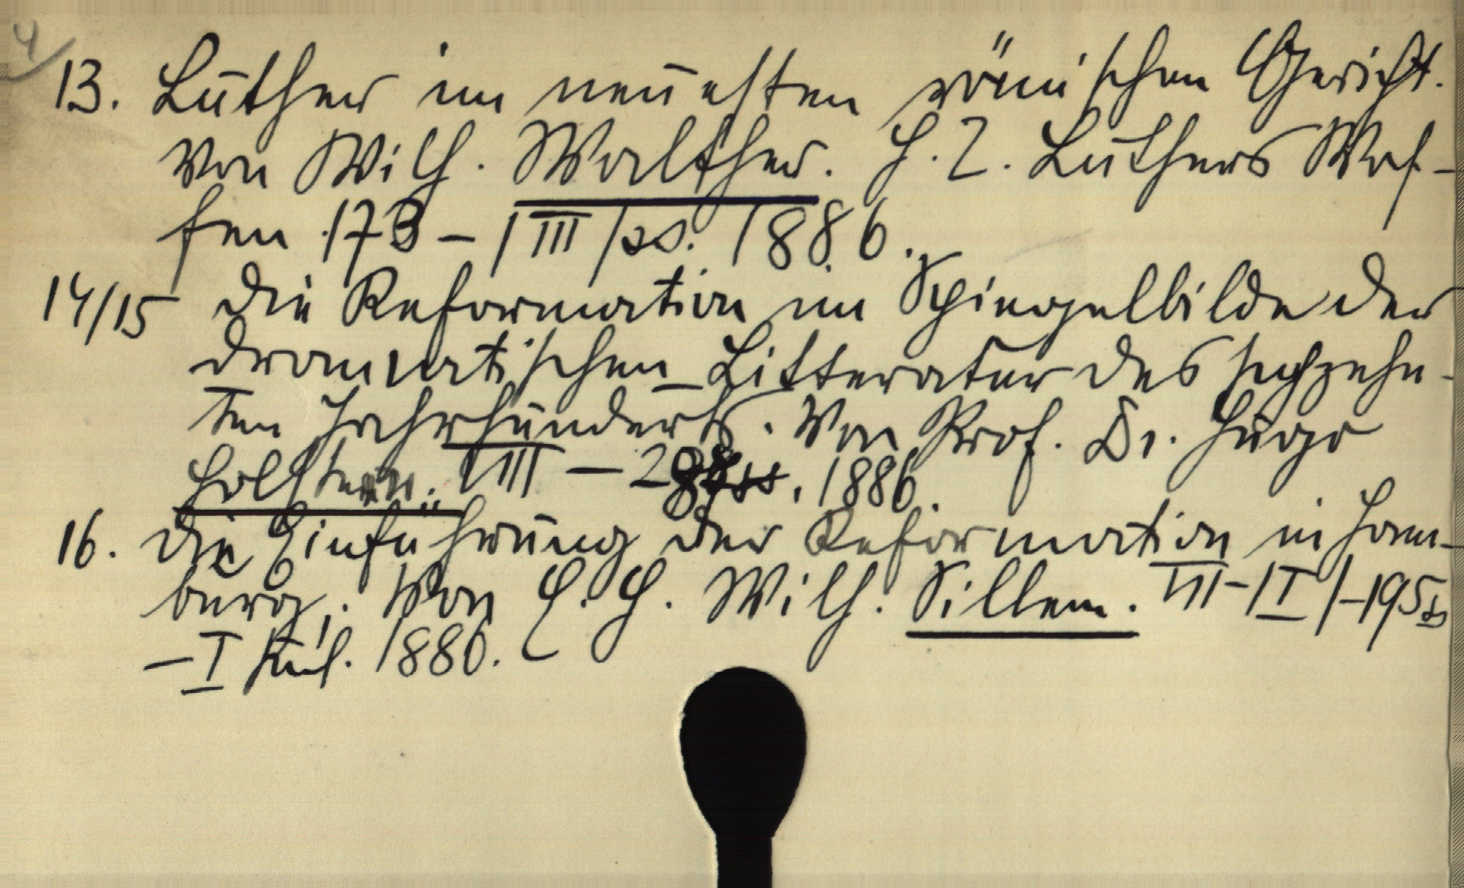 4
13. Luther im neuesten römischen Gericht.
Von Wilh. Walther. H. 2. Luthers Waf-
fen. 173 - /III/ SS. 1886.
14/15 Die Reformation im Spiegelbilde der
dramatischen Litteratur des sechzehn-
ten Jahrhunderts. Von Prof. Dr. Hugo
Holstein. VIII - 28 SS. 1886.
16. Die Einführung der Reformation in Ham-
burg. Von C. H. Wilh. Sillem. VII - /I/ - 195 SS
- I 1886.